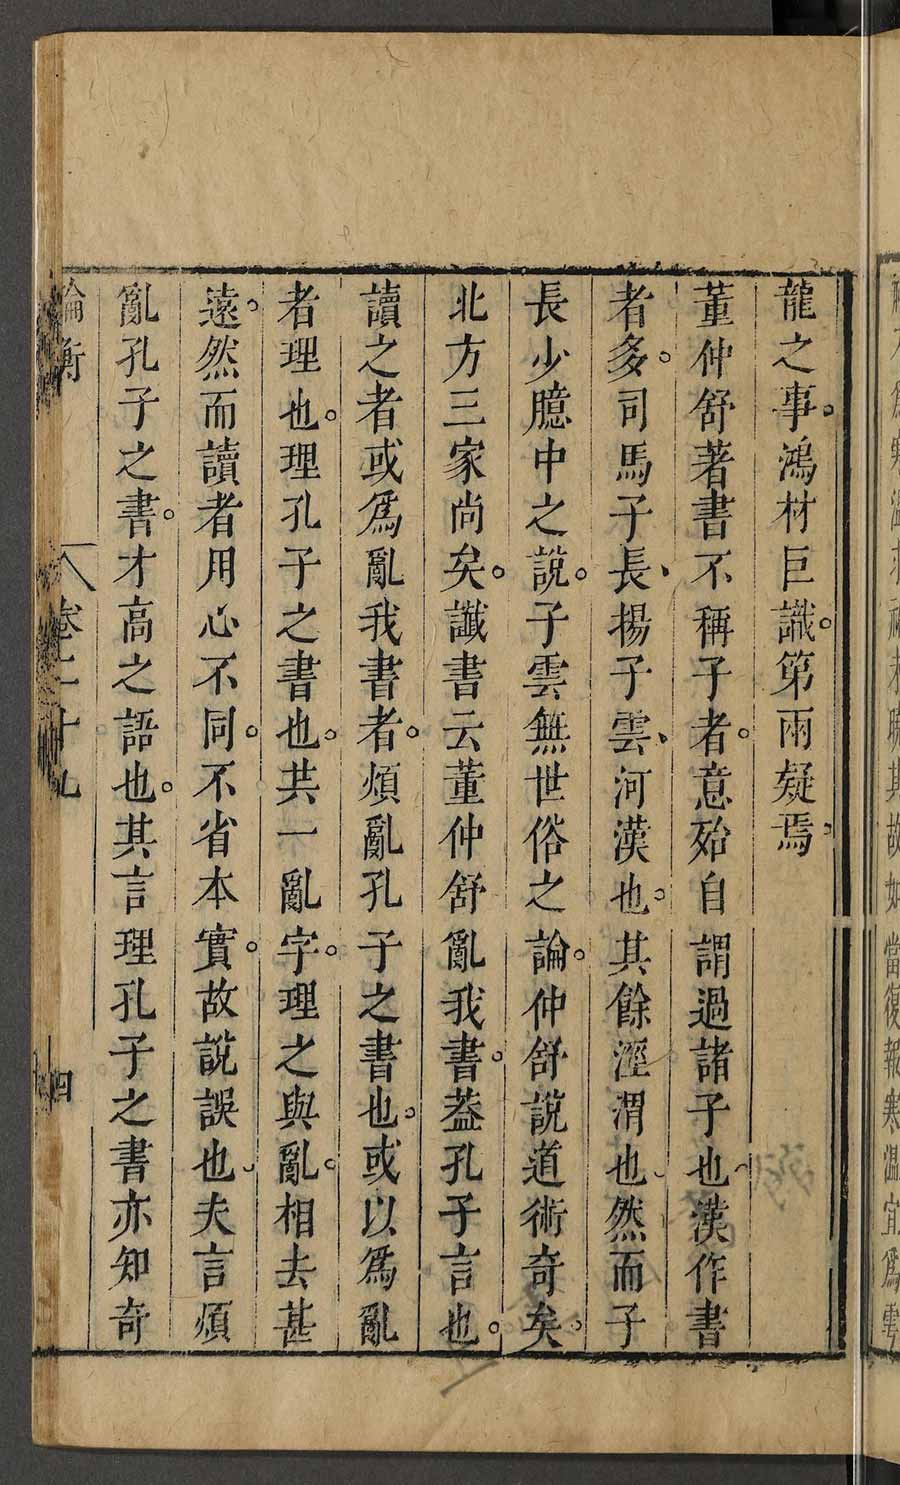 龍之事。鴻材巨識。第兩疑焉。
董仲舒著書不稱子者。意殆自謂過諸子也。漢作書
者多。司馬子長、揚子雲、河漢也。其餘涇渭也。然而子
長少臆中之說。子雲無世俗之論。仲舒說道術奇矣。
北方三家尚矣。讖書云董仲舒亂我書。葢孔子言也。
讀之者或爲亂我書者。煩亂孔子之書也。或以爲亂
者理也。理孔子之書也。共一亂字。理之與亂。相去甚
遠。然而讀者用心不同。不省本實。故說誤也。夫言煩
亂孔子之書。才高之語也。其言理孔子之書亦知奇
論衡 卷二十九 四